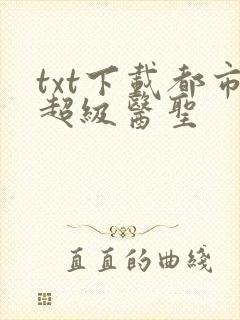 txt下载都市
超级醫聖
直直的曲綫